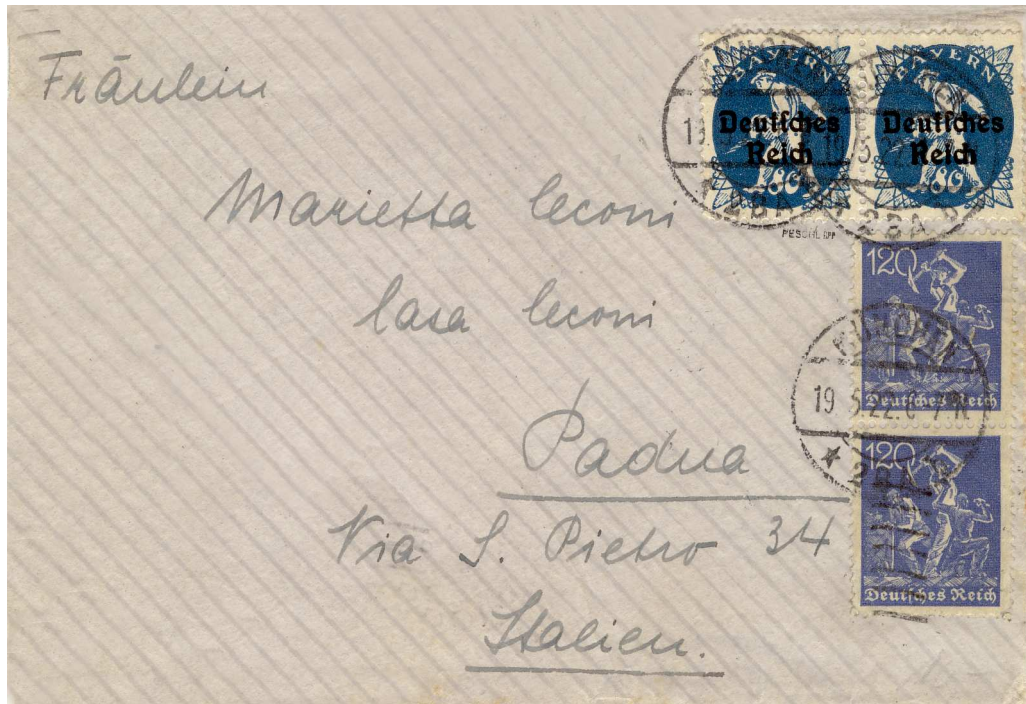 Fräulein
Marietta Ceconi
Casa Ceconi
Padua
Via S. Pietro 34
Italien.
BAYERN
Deutsches
Reich
80
BAYERN
Deutsches
Reich
80
2BA
2BA
120
Deutsches Reich
MÜNCHEN
19 5.22. 6-7 N.
2BA
120
Deutsches Reich